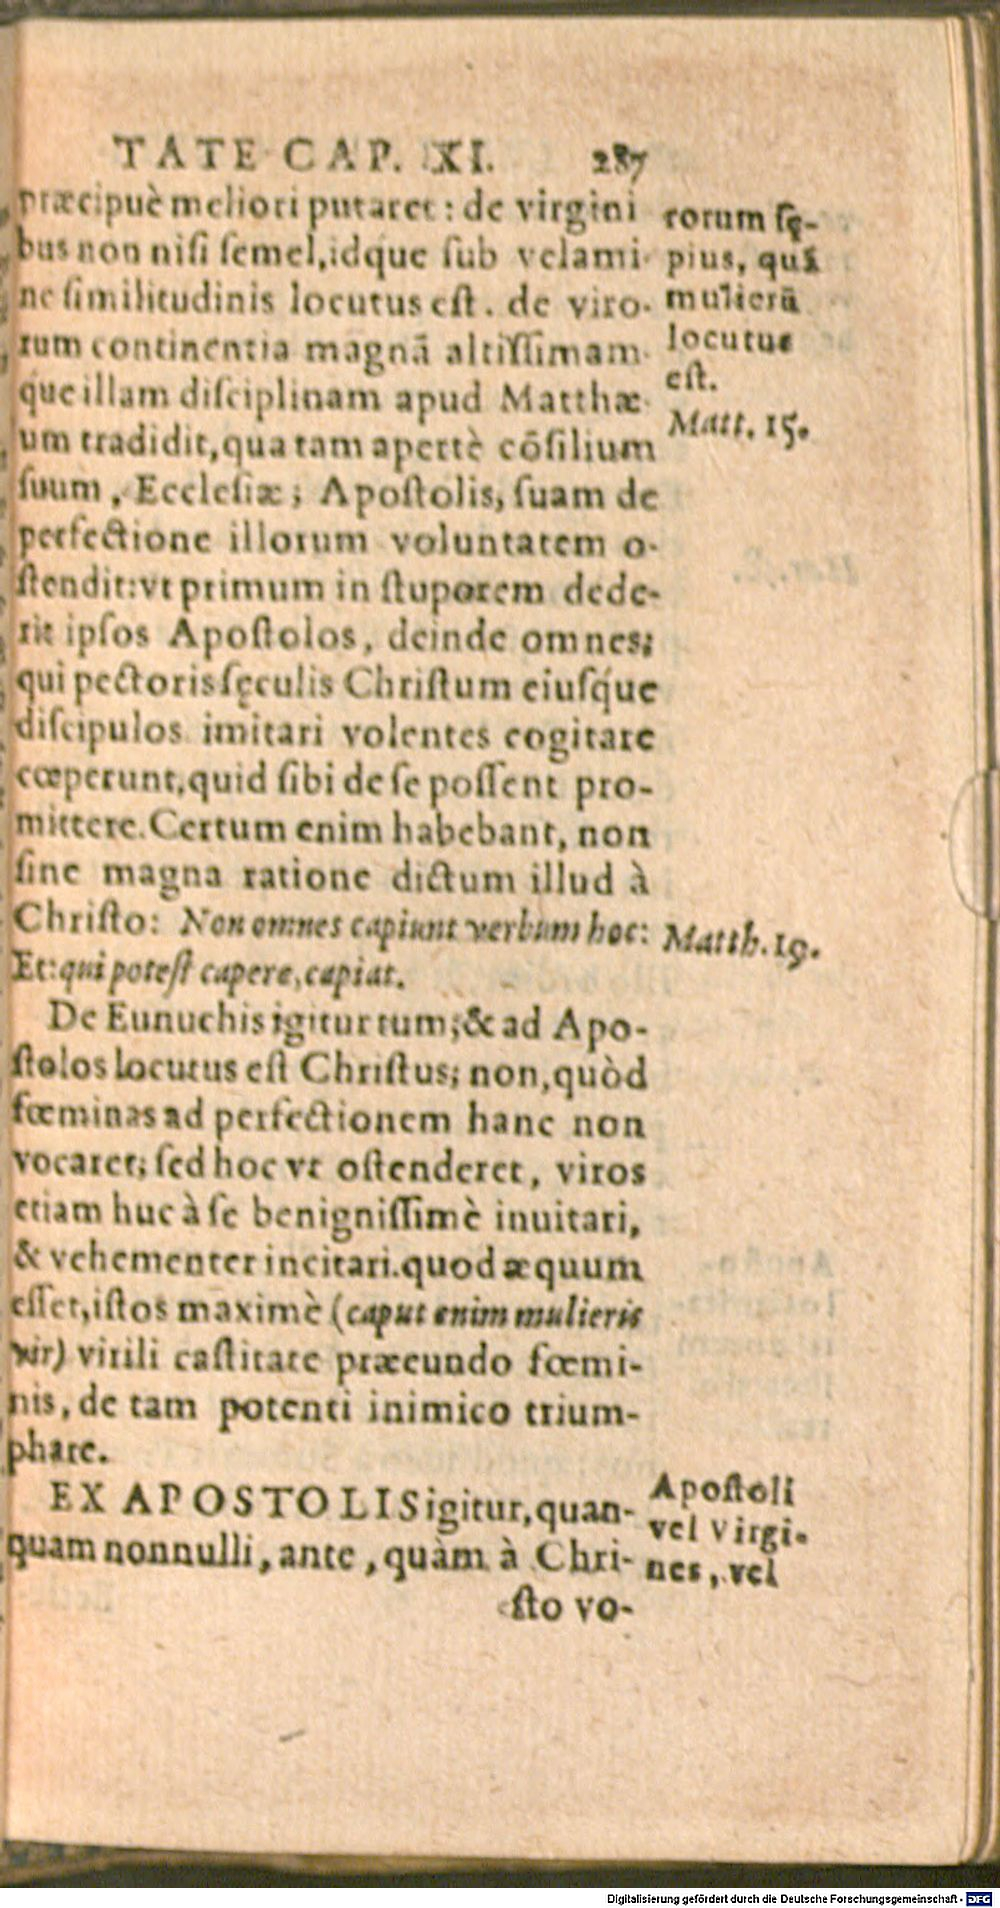 TATE CAP. XI. 287
præcipuè meliori putaret: de virgini
bus non nisi semel, idque sub velami-
ne similitudinis locutus est. de viro-
rum continentia magnā altissimam-
que illam disciplinam apud Matthæ-
um tradidit, qua tam apertè cōsilium
suum, Ecclesiæ; Apostolis, suam de
perfectione illorum voluntatem o-
stendit: vt primum in stuporem dede-
rit ipsos Apostolos, deinde omnes;
qui pectoris sęculis Christum eiusq́ue
discipulos imitari volentes cogitare
cœperunt, quid sibi de se possent pro-
mittere. Certum enim habebant, non
sine magna ratione dictum illud à
Christo: Non omnes capiunt verbum hoc:
Et: qui potest capere, capiat.
De Eunuchis igitur tum; & ad Apo-
stolos locutus est Christus; non, quòd
fœminas ad perfectionem hanc non
vocaret; sed hoc vt ostenderet, viros
etiam huc à se benignissimè inuitari,
& vehementer incitari. quod æquum
esset, istos maximè (caput enim mulieris
vir) virili castitate præeundo fœmi-
nis, de tam potenti inimico trium-
phare.
EX APOSTOLIS igitur, quan-
quam nonnulli, ante, quàm à Chri-
sto vo-
rorum sę-
pius, quā
mulierū
locutus
est.
Matt. 15.
Matth. 19.
Apostoli
vel Virgi-
nes, vel
Digitalisierung gefördert durch die Deutsche Forschungsgemeinschaft - DFG